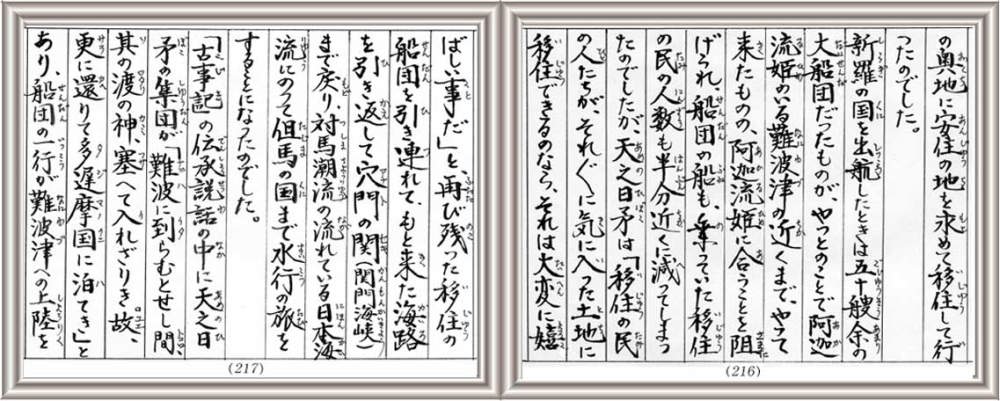 の奥地に安住の地を求めて移住して行
ったのでした。
新羅の国を出航したときは五十艘余の
大船団だったものが、やっとのことで阿迦
流姫のいる難波津の近くまで、やって
来たものの、阿迦流姫に合うことを阻
げられ、船団の船も、乗っていた移住
の民の人数も半分近くに減ってしまっ
たのでしたが、天之日矛は「移住の民
の人たちが、それ〲に気に入った土地に
移住できるのなら、それは大変に嬉
(216)
ばしい事だ」と、再び残った移住の
船団を引き連れて、もと来た海路
を引き返して穴門の関(関門海峡)
まで戻り、対馬潮流の流れている日本海
流にのって但馬の国まで水行の旅を
することになったのでした。
「古事記」の伝承説話の中に天之日
矛の集団が「難波に到らむとせし間
其の渡の神、塞へて入れざりき、故、
更に還りて多遅摩国に泊てき」と
あり、船団の一行が難波津への上陸を
(217)